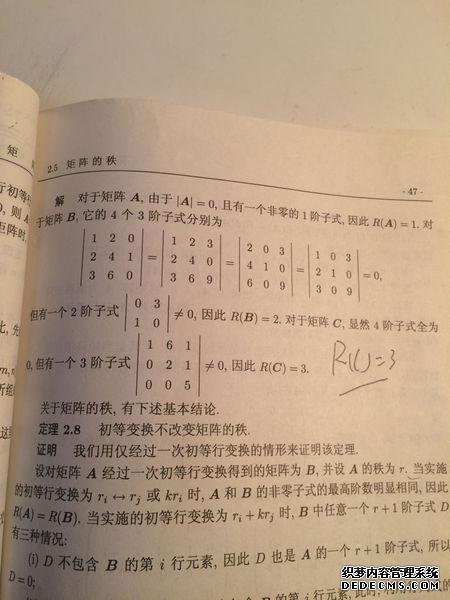 2.5 矩阵的秩
· 47 ·
解 对于矩阵 A, 由于 |A| = 0, 且有一个非零的 1 阶子式, 因此 R(A) = 1. 对
于矩阵 B, 它的 4 个 3 阶子式分别为
| 1 2 0 | | 1 2 3 | | 2 0 3 | | 1 0 3 |
| 2 4 1 | = | 2 4 0 | = | 4 1 0 | = | 2 1 0 | = 0,
| 3 6 0 | | 3 6 9 | | 6 0 9 | | 3 0 9 |
但有一个 2 阶子式 | 0 3 | ≠ 0, 因此 R(B) = 2. 对于矩阵 C, 显然 4 阶子式全为
| 1 0 |
| 1 6 1 |
0, 但有一个 3 阶子式 | 0 2 1 | ≠ 0, 因此 R(C) = 3.
| 0 0 5 |
R(C)=3
关于矩阵的秩, 有下述基本结论.
定理 2.8 初等变换不改变矩阵的秩.
证明 我们用仅经过一次初等行变换的情形来证明该定理.
设对矩阵 A 经过一次初等行变换得到的矩阵为 B, 并设 A 的秩为 r. 当实施
的初等行变换为 ri ↔ rj 或 kri 时, A 和 B 的非零子式的最高阶数明显相同, 因此
R(A) = R(B). 当实施的初等行变换为 ri + krj 时, B 中任意一个 r + 1 阶子式 D
有三种情况:
(i) D 不包含 B 的第 i 行元素, 因此 D 也是 A 的一个 r + 1 阶子式, 所以
D = 0;
B 的第 i 行元素, 此时,